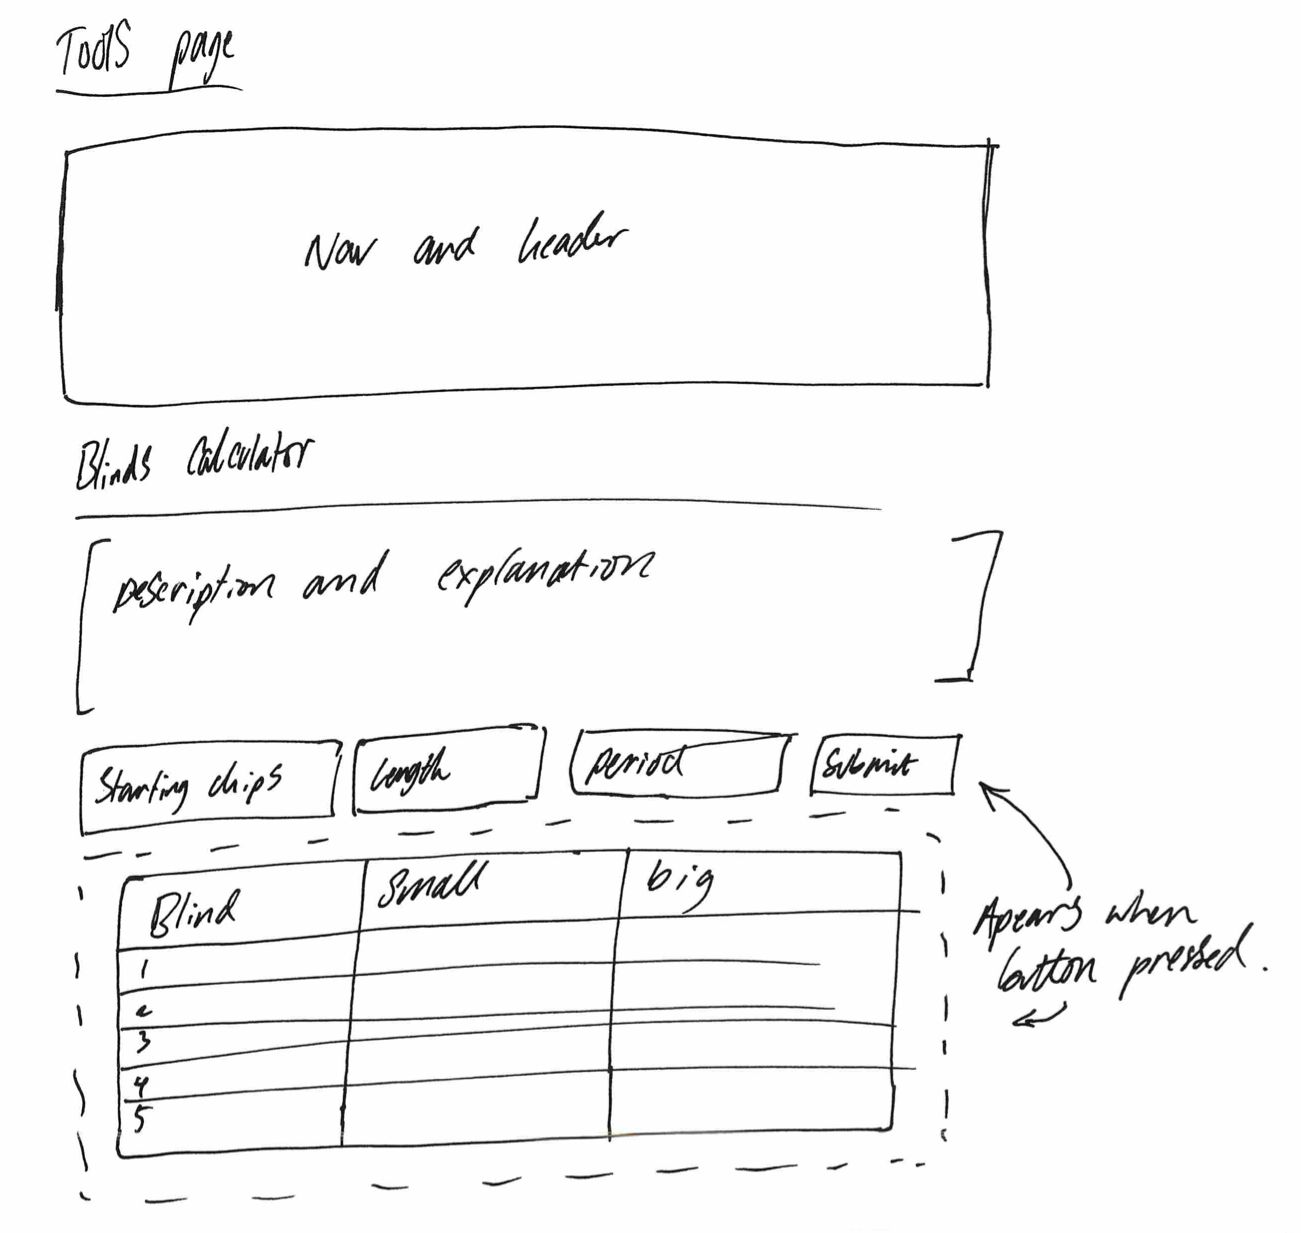 Tools page
Nav and header
Blinds Calculator
Description and explanation
Starting chips Length Period Submit
Blind Small big
1
2
3
4
5
Apears when
button pressed.